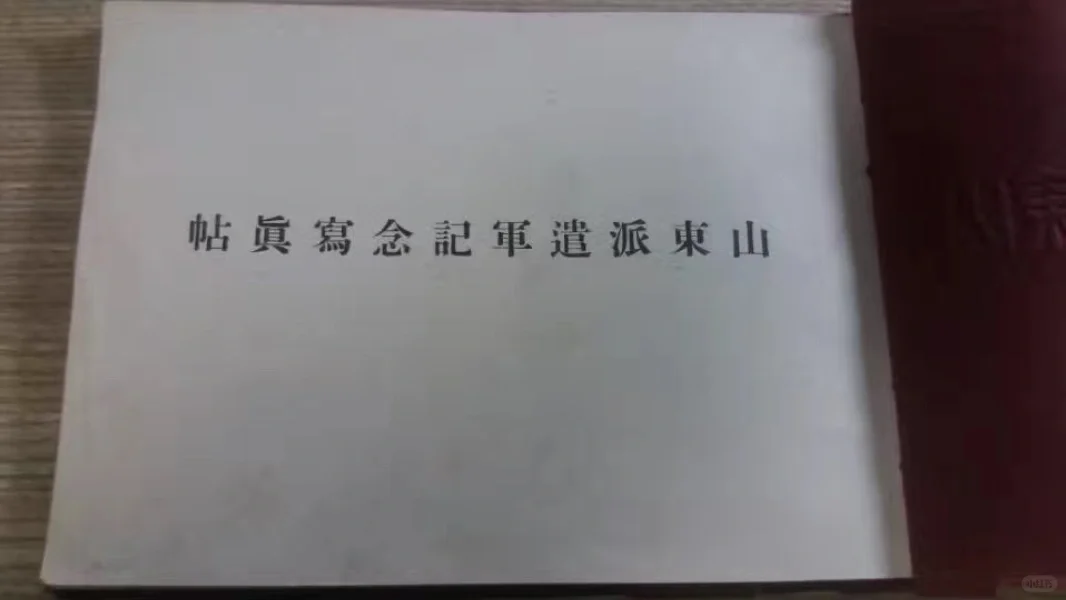 山東派遣軍記念寫眞帖